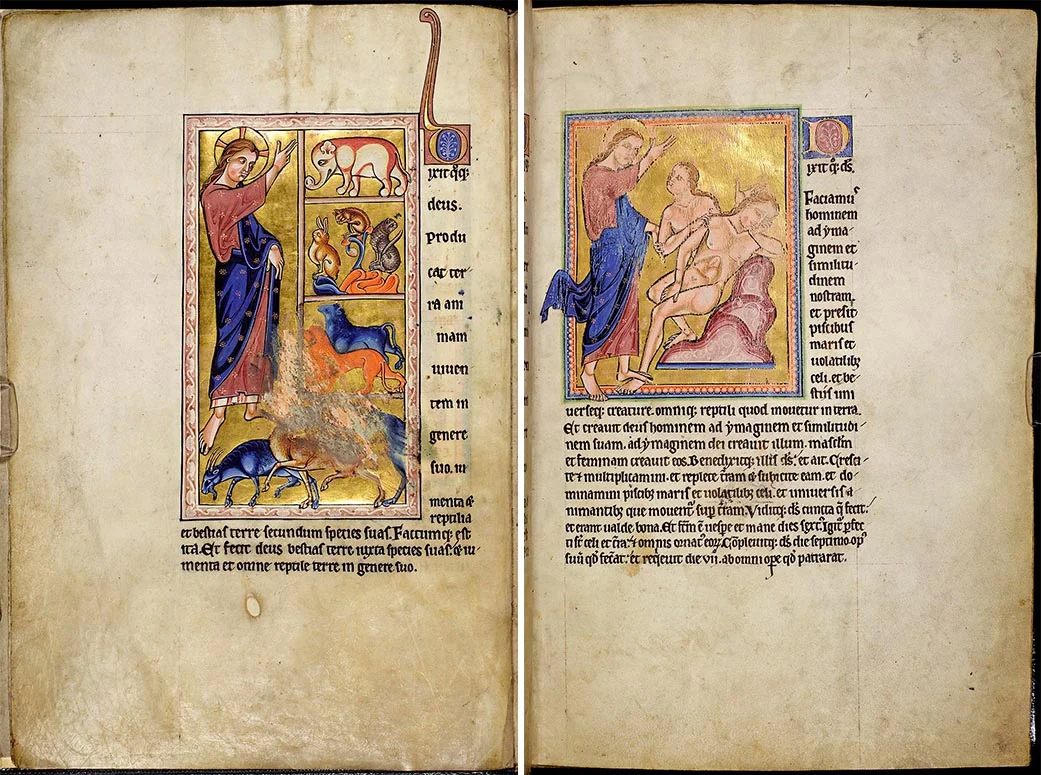 D
ixit q̄q;
deus.
Produ
cat ter-
ra am
mam
uiuen
tem in
genere
suo. iu
menta &
reptilia
et bestias terre secundum species suas. Factumq; est
ita. Et fecit deus bestias terre iuxta species suas. & iu-
menta et omne reptile terre in genere suo.
D
ixit q; d̄s.
Faciamus
hominem
ad yma-
ginem et
similitu-
dinem
nostram
et presit
piscibus
maris et
uolatilib;
celi. et be-
stiis uni
uerseq; creature. omniq; reptili quod mouetur in terra.
Et creauit deus hominem ad ymaginem et similitudi-
nem suam. ad ymaginem dei creauit illum. masclm
et feminam creauit eos. Benedixitq; illis d̄s. et ait. Cresci-
te & multiplicamini. et replete t̄ram & subicite eam. et do-
minamini piscib; maris et uolatilib; celi. et uniuersis a-
nimantib; que mouent̄ sup t̄ram. Viditq; d̄s cuncta q̄ fecit.
et erant ualde bona. Et f̄c̄m ē uespe et mane dies sext. Igit̄ p̄fec
ti s̄t celi et t̄ra. & omnis ornat̄ eoꝝ. Cōpleuitq; d̄s die septimo op̄
suū qd̄ fecat̄. et reqieuit die vii. ab omni ope qd̄ patrarat.